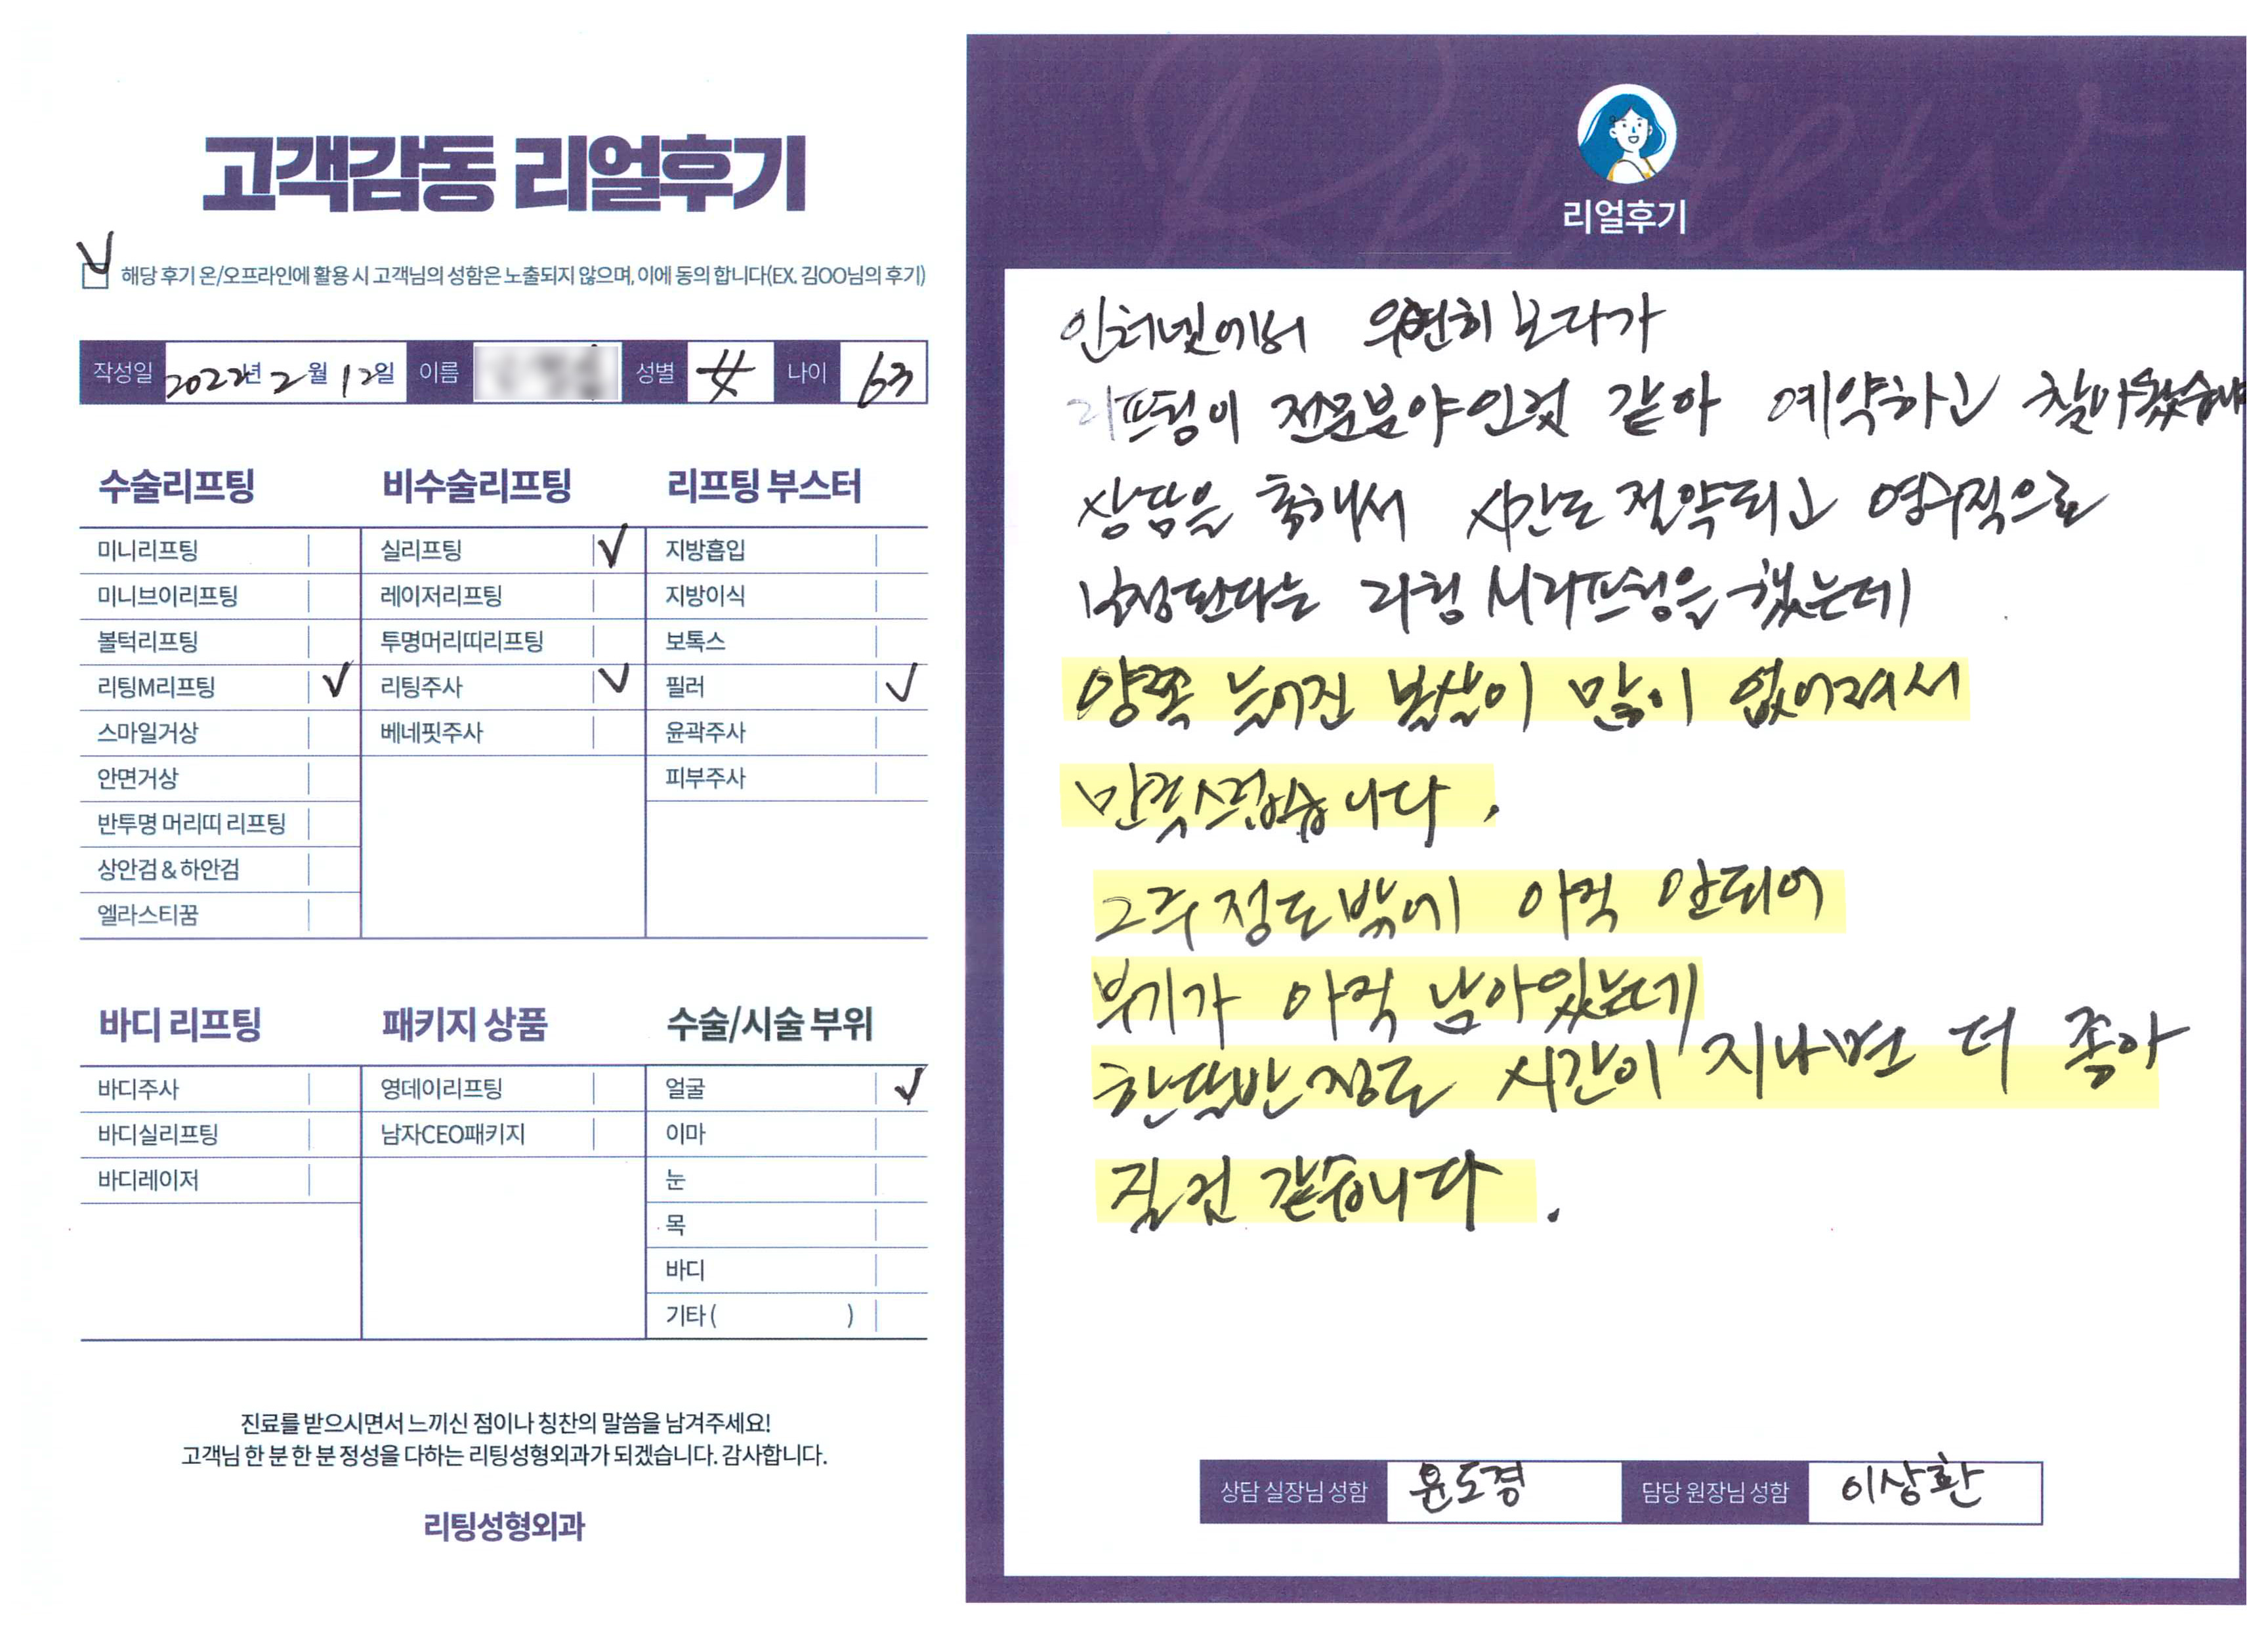 고객감동 리얼후기
해당 후기 온/오프라인에 활용 시 고객님의 성함은 노출되지 않으며, 이에 동의 합니다(EX. 김OO님의 후기)
작성일 2022년 2월 12일 이름 성별 女 나이 63
수술리프팅
미니리프팅
미니브이리프팅
볼턱리프팅
리팅M리프팅
스마일거상
안면거상
반투명 머리띠 리프팅
상안검 & 하안검
엘라스티꿈
비수술리프팅
실리프팅
레이저리프팅
투명머리띠리프팅
리팅주사
베네핏주사
리프팅 부스터
지방흡입
지방이식
보톡스
필러
윤곽주사
피부주사
바디 리프팅
바디주사
바디실리프팅
바디레이저
패키지 상품
영데이리프팅
남자CEO패키지
수술/시술 부위
얼굴
이마
눈
목
바디
기타 ( )
진료를 받으시면서 느끼신 점이나 칭찬의 말씀을 남겨주세요!
고객님 한 분 한 분 정성을 다하는 리팅성형외과가 되겠습니다. 감사합니다.
리팅성형외과
Review
리얼후기
인터넷에서 우연히 보다가
리프팅이 전문분야인것 같아 예약하고 찾아왔습니다
상담을 축해서 시간도 절약되고 영구적으로
된다는 리팅 리프팅을 했는데
양쪽 늘어진 볼살이 많이 없어져서
만족스럽습니다.
2주정도밖에 아직 안되어
부기가 아직 남아있는데
한달반정도 시간이 지나면 더 좋아
질것 같습니다.
상담 실장님 성함 윤도경 담당 원장님 성함 이상환